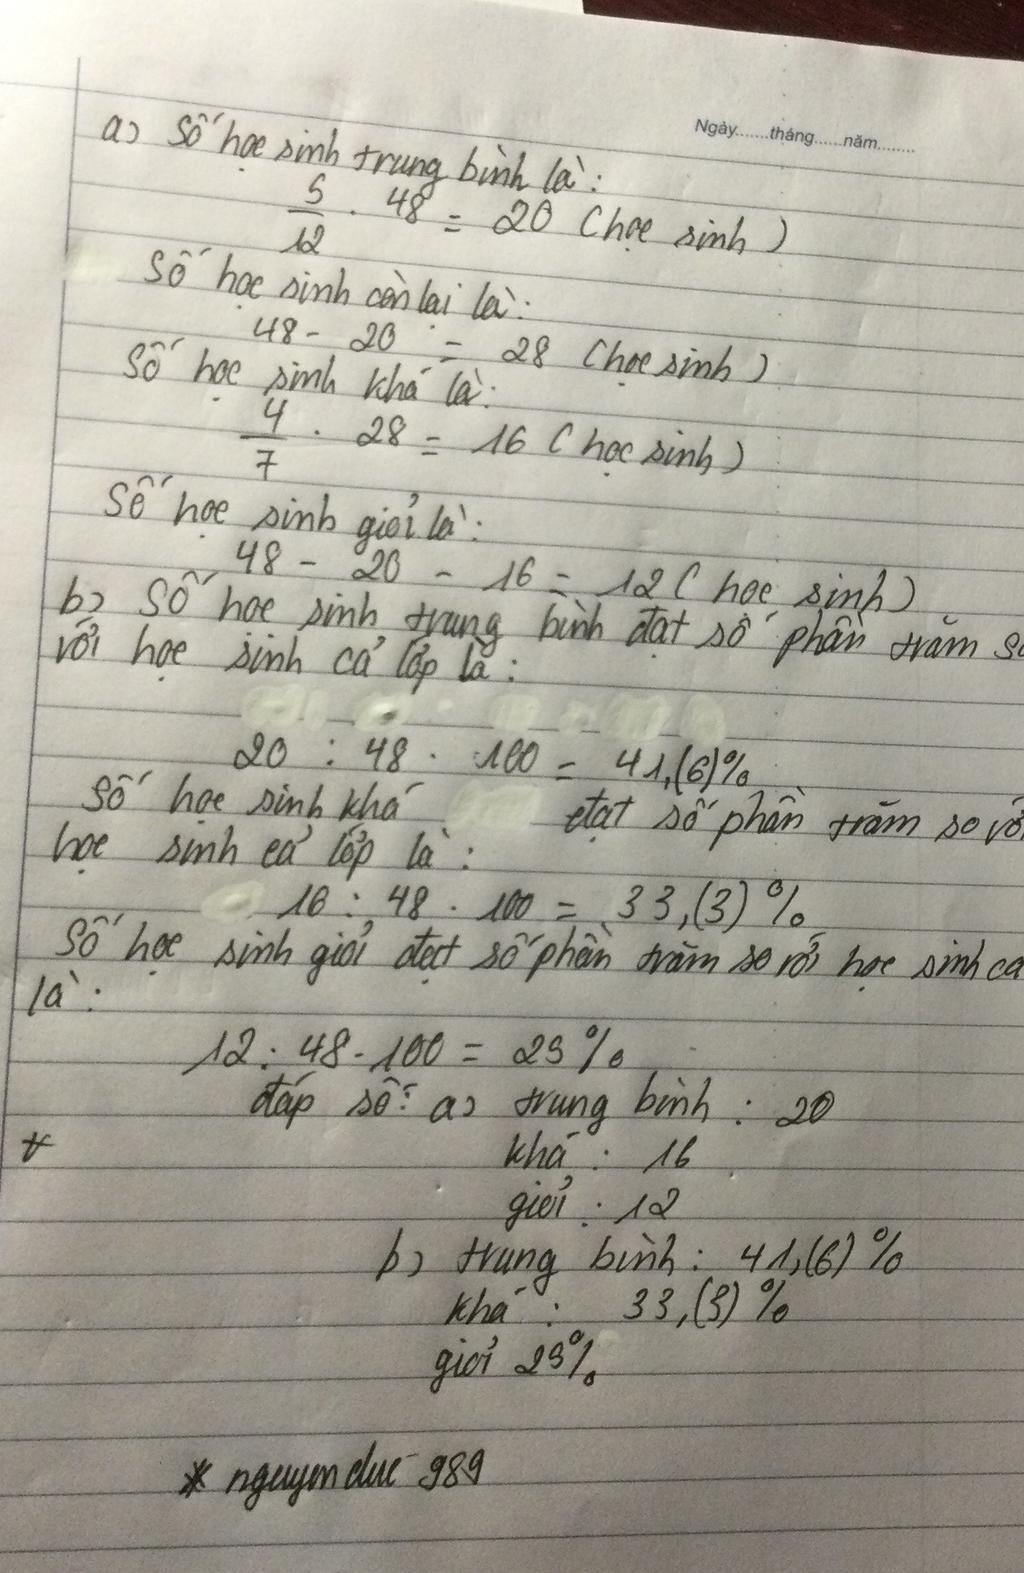 Ngày.......tháng......năm........
a) Số học sinh trung bình là:
5/12 . 48 = 20 (học sinh)
Số học sinh còn lại là:
48 - 20 = 28 (học sinh)
Số học sinh khá là:
4/7 . 28 = 16 (học sinh)
Số học sinh giỏi là:
48 - 20 - 16 = 12 (học sinh)
b) Số học sinh trung bình đạt số phần trăm so
với học sinh cả lớp là:
20 : 48 . 100 = 41,(6)%
Số học sinh khá đạt số phần trăm so với
học sinh cả lớp là:
16 : 48 . 100 = 33,(3)%
Số học sinh giỏi đạt số phần trăm so với học sinh cả
là:
12 : 48 . 100 = 25%
đáp số: a) trung bình : 20
khá : 16
giỏi : 12
b) trung bình : 41,(6)%
khá : 33,(3)%
giỏi 25%
* nguyenduc 989